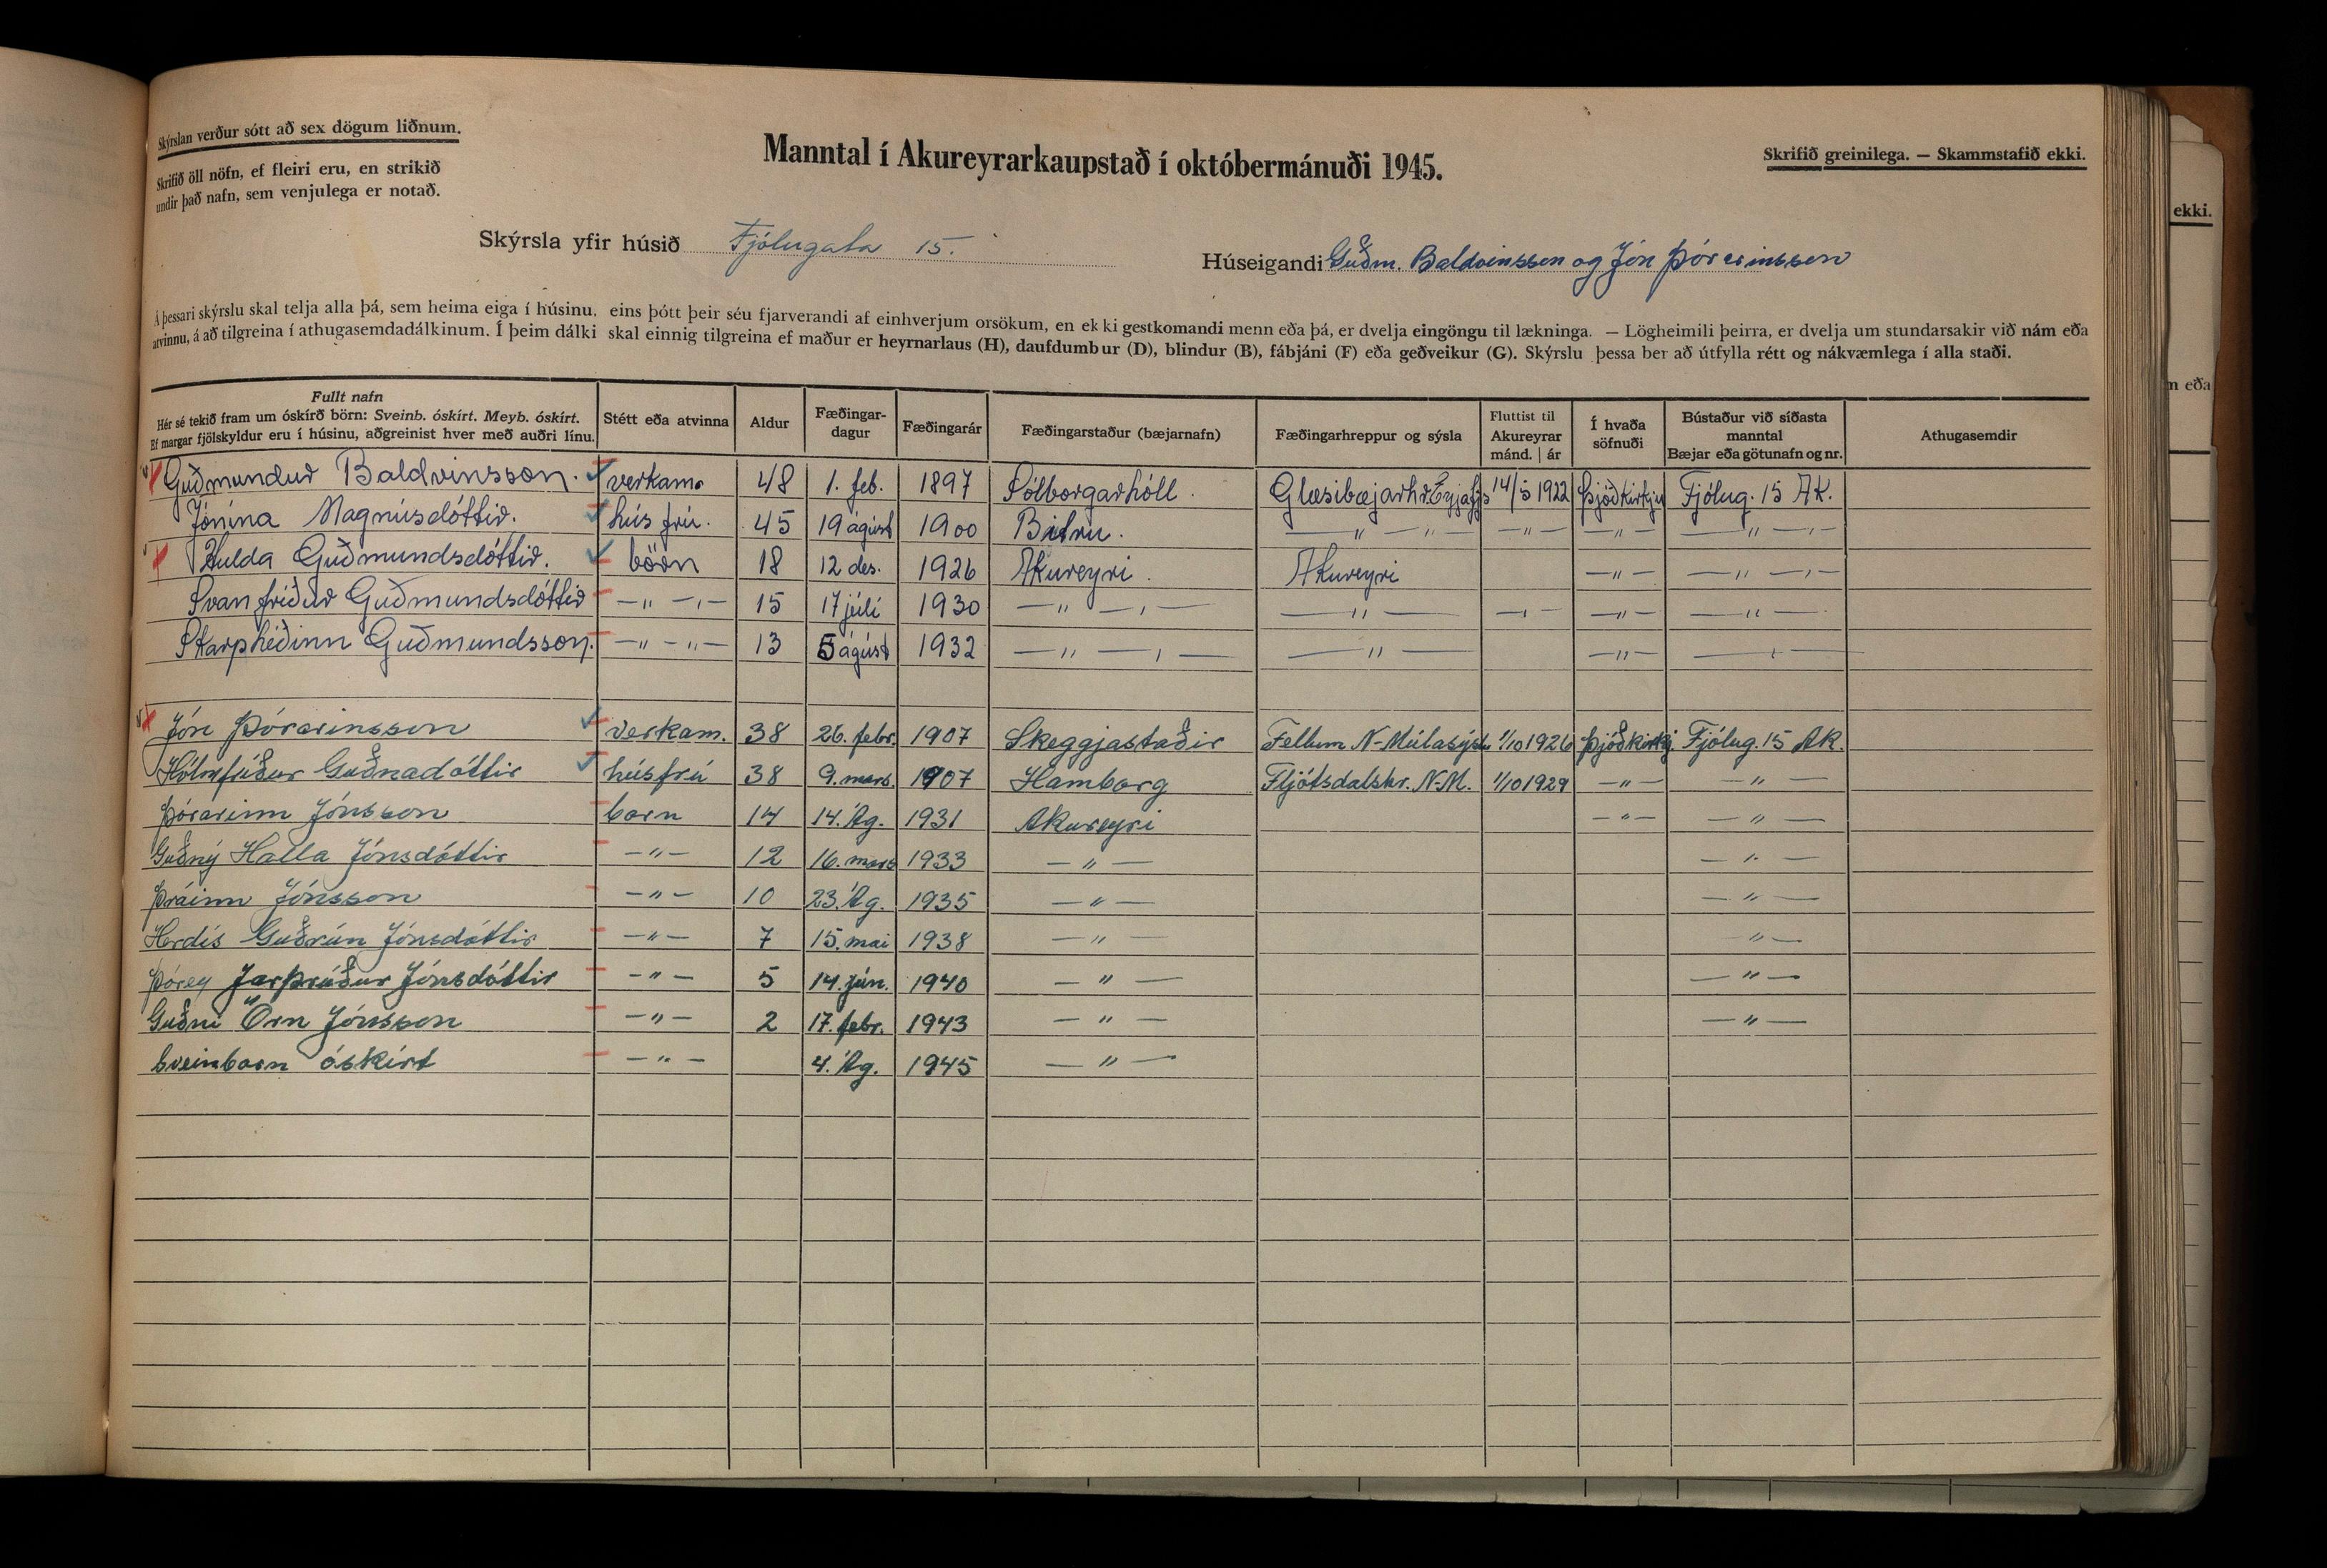 Skýrslan verður sótt að sex dögum liðnum.
Skrifið öll nöfn, ef fleiri eru, en strikið
undir það nafn, sem venjulega er notað.
Manntal í Akureyrarkaupstað í októbermánuði 1945.
Skrifið greinilega. — Skammstafið ekki.
ekki.
Skýrsla yfir húsið Fjólugata 15.
Húseigandi Guðm. Baldvinsson og Jón Þórarinsson
Á þessari skýrslu skal telja alla þá, sem heima eiga í húsinu, eins þótt þeir séu fjarverandi af einhverjum orsökum, en ekki gestkomandi menn eða þá, er dvelja eingöngu til lækninga. — Lögheimili þeirra, er dvelja um stundarsakir við nám eða
atvinnu, á að tilgreina í athugasemdadálkinum. Í þeim dálki skal einnig tilgreina ef maður er heyrnarlaus (H), daufdumbur (D), blindur (B), fábjáni (F) eða geðveikur (G). Skýrslu þessa ber að útfylla rétt og nákvæmlega í alla staði.
m eða
Fullt nafn
Hér sé tekið fram um óskírð börn: Sveinb. óskírt. Meyb. óskírt.
Ef margar fjölskyldur eru í húsinu, aðgreinist hver með auðri línu.
Stétt eða atvinna
Aldur
Fæðingar-
dagur
Fæðingarár
Fæðingarstaður (bæjarnafn)
Fæðingarhreppur og sýsla
Fluttist til
Akureyrar
mánd. | ár
Í hvaða
söfnuði
Bústaður við síðasta
manntal
Bæjar eða götunafn og nr.
Athugasemdir
Guðmundur Baldvinsson. verkam. 48 1. feb. 1897 Sólborgarhóll. Glæsibæjarhr. Eyjafjs 14/5 1922 Þjóðkirkju Fjólug. 15 Ak.
Jónína Magnúsdóttir. húsfrú. 45 19 ágúst 1900 Bitru. —〃—〃— —〃— —〃— —〃—
Hulda Guðmundsdóttir. börn 18 12 des. 1926 Akureyri. Akureyri —〃— —〃—
Svanfríður Guðmundsdóttir —〃— 15 17 júlí 1930 —〃— —〃— —〃— —〃— —〃—
Skarphéðinn Guðmundsson. —〃— 13 5 ágúst 1932 —〃— —〃— —〃— —〃—
Jón Þórarinsson verkam. 38 26. febr. 1907 Skeggjastaðir Fellum N-Múlasýslu 1/10 1926 Þjóðkirkj Fjólug. 15 Ak.
Hólmfríður Guðnadóttir húsfrú 38 9. mars. 1907 Hamborg Fljótsdalshr. N-M. 1/10 1929 —〃— —〃—
Þórarinn Jónsson barn 14 14. Ág. 1931 Akureyri —〃— —〃—
Guðný Halla Jónsdóttir —〃— 12 16. mars 1933 —〃— —〃—
Þráinn Jónsson —〃— 10 23. Ág. 1935 —〃— —〃—
Herdís Guðrún Jónsdóttir —〃— 7 15. mai 1938 —〃— —〃—
Þórey Jarþrúður Jónsdóttir —〃— 5 14. jún. 1940 —〃— —〃—
Guðni Örn Jónsson —〃— 2 17. febr. 1943 —〃— —〃—
Sveinbarn óskírt —〃— 4. Ág. 1945 —〃—